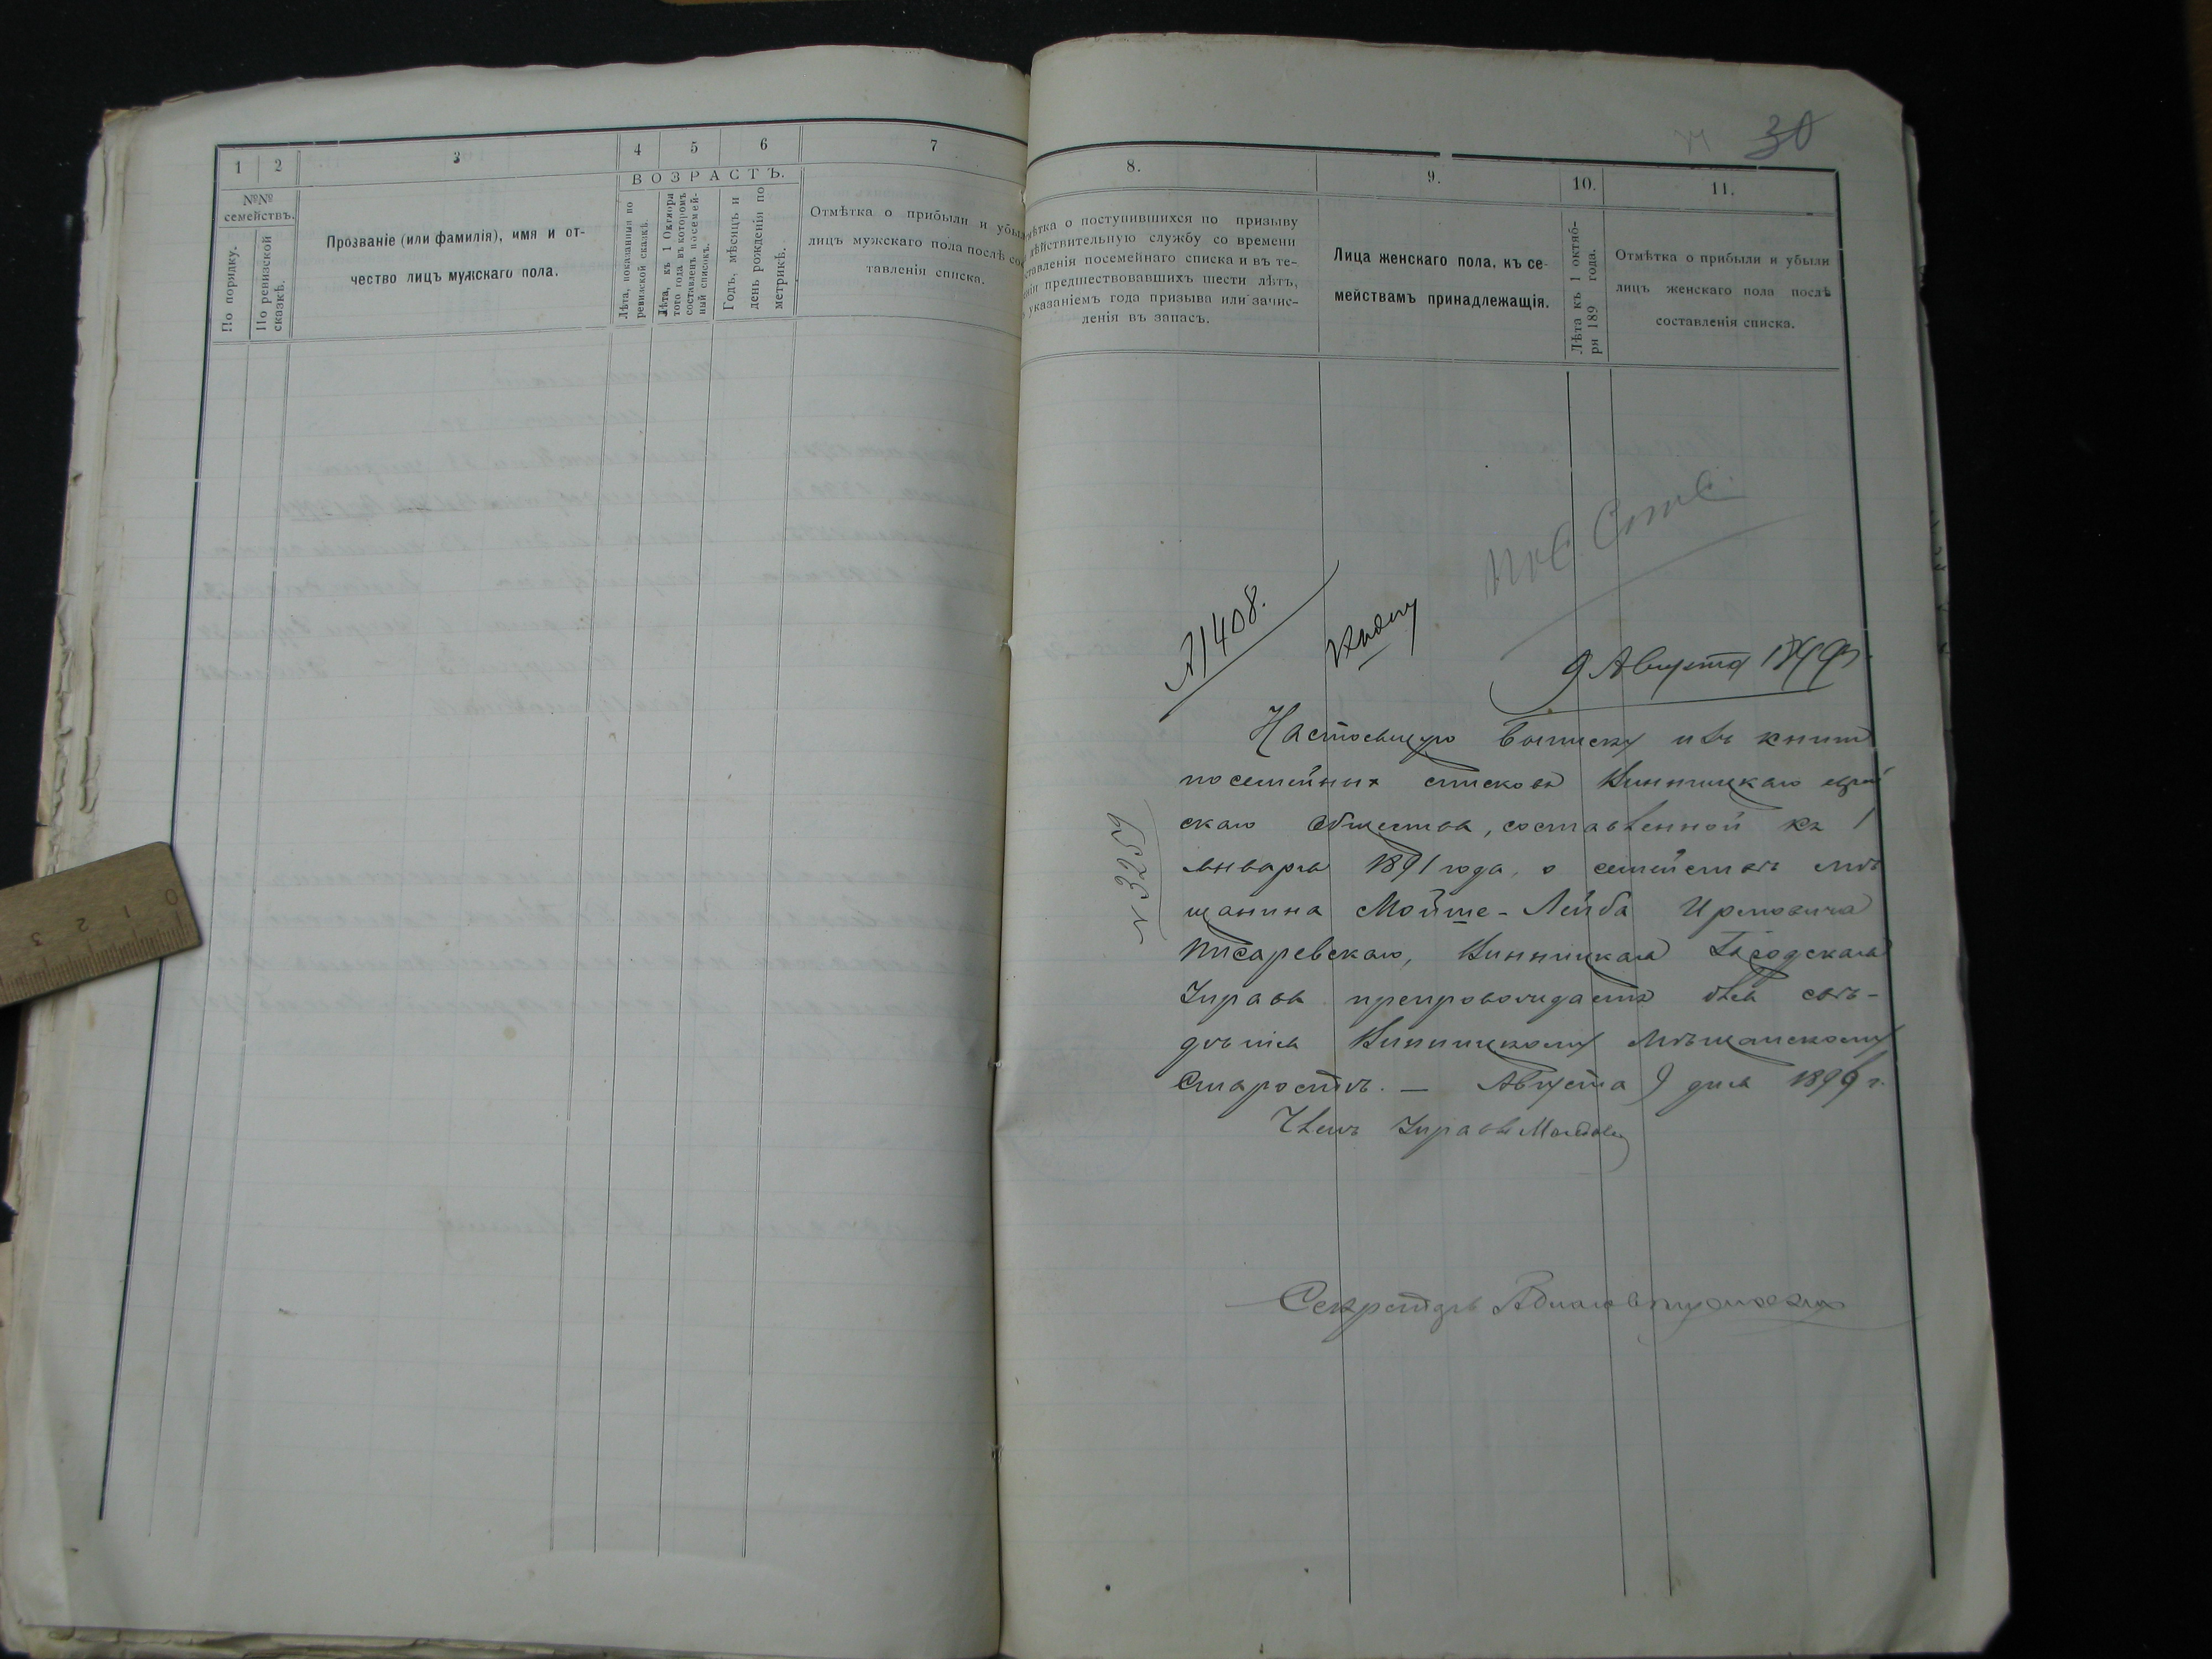 1 2 3 4 5 6 7
№№ семействъ.
По порядку.
По ревизской сказкѣ.
Прозваніе (или фамилія), имя и от-
чество лицъ мужскаго пола.
ВОЗРАСТЪ.
Лѣта, показанныя по
ревизской сказкѣ.
Лѣта, къ 1 Октября
того года въ которомъ
составленъ посемей-
ный списокъ.
Годъ, мѣсяцъ и
день рожденія по
метрикѣ.
Отмѣтка о прибыли и убыли
лицъ мужскаго пола послѣ со
тавленія списка.
30
8. 9. 10. 11.
ѣтка о поступившихся по призыву
дѣйствительную службу со времени
ставленія посемейнаго списка и въ те-
ніи предшествовавшихъ шести лѣтъ,
указаніемъ года призыва или зачис-
ленія въ запасъ.
Лица женскаго пола, къ се-
мействамъ принадлежащія.
Лѣта къ 1 октяб-
ря 189 года.
Отмѣтка о прибыли и убыли
лицъ женскаго пола послѣ
составленія списка.
№1408.
9 Августа
Настоящую выписку изъ книги
посемейныхъ списковъ Винницкаго еврей
скаго общества, составленной къ 1
января 1891 года, о семействѣ мѣ
щанина Мойше-Лейба Ирмовича
Писаревскаго, Винницкая Городская
Управа препровождаетъ для свѣ-
дѣнія Винницкому Мѣщанскому
Старостѣ. — Августа 9 дня 1899 г.
№ 3259
Членъ Управы
Секретарь
0 1 2 3